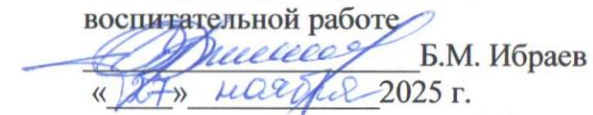 воспитательной работе
Б.М. Ибраев
«27» ноября 2025 г.